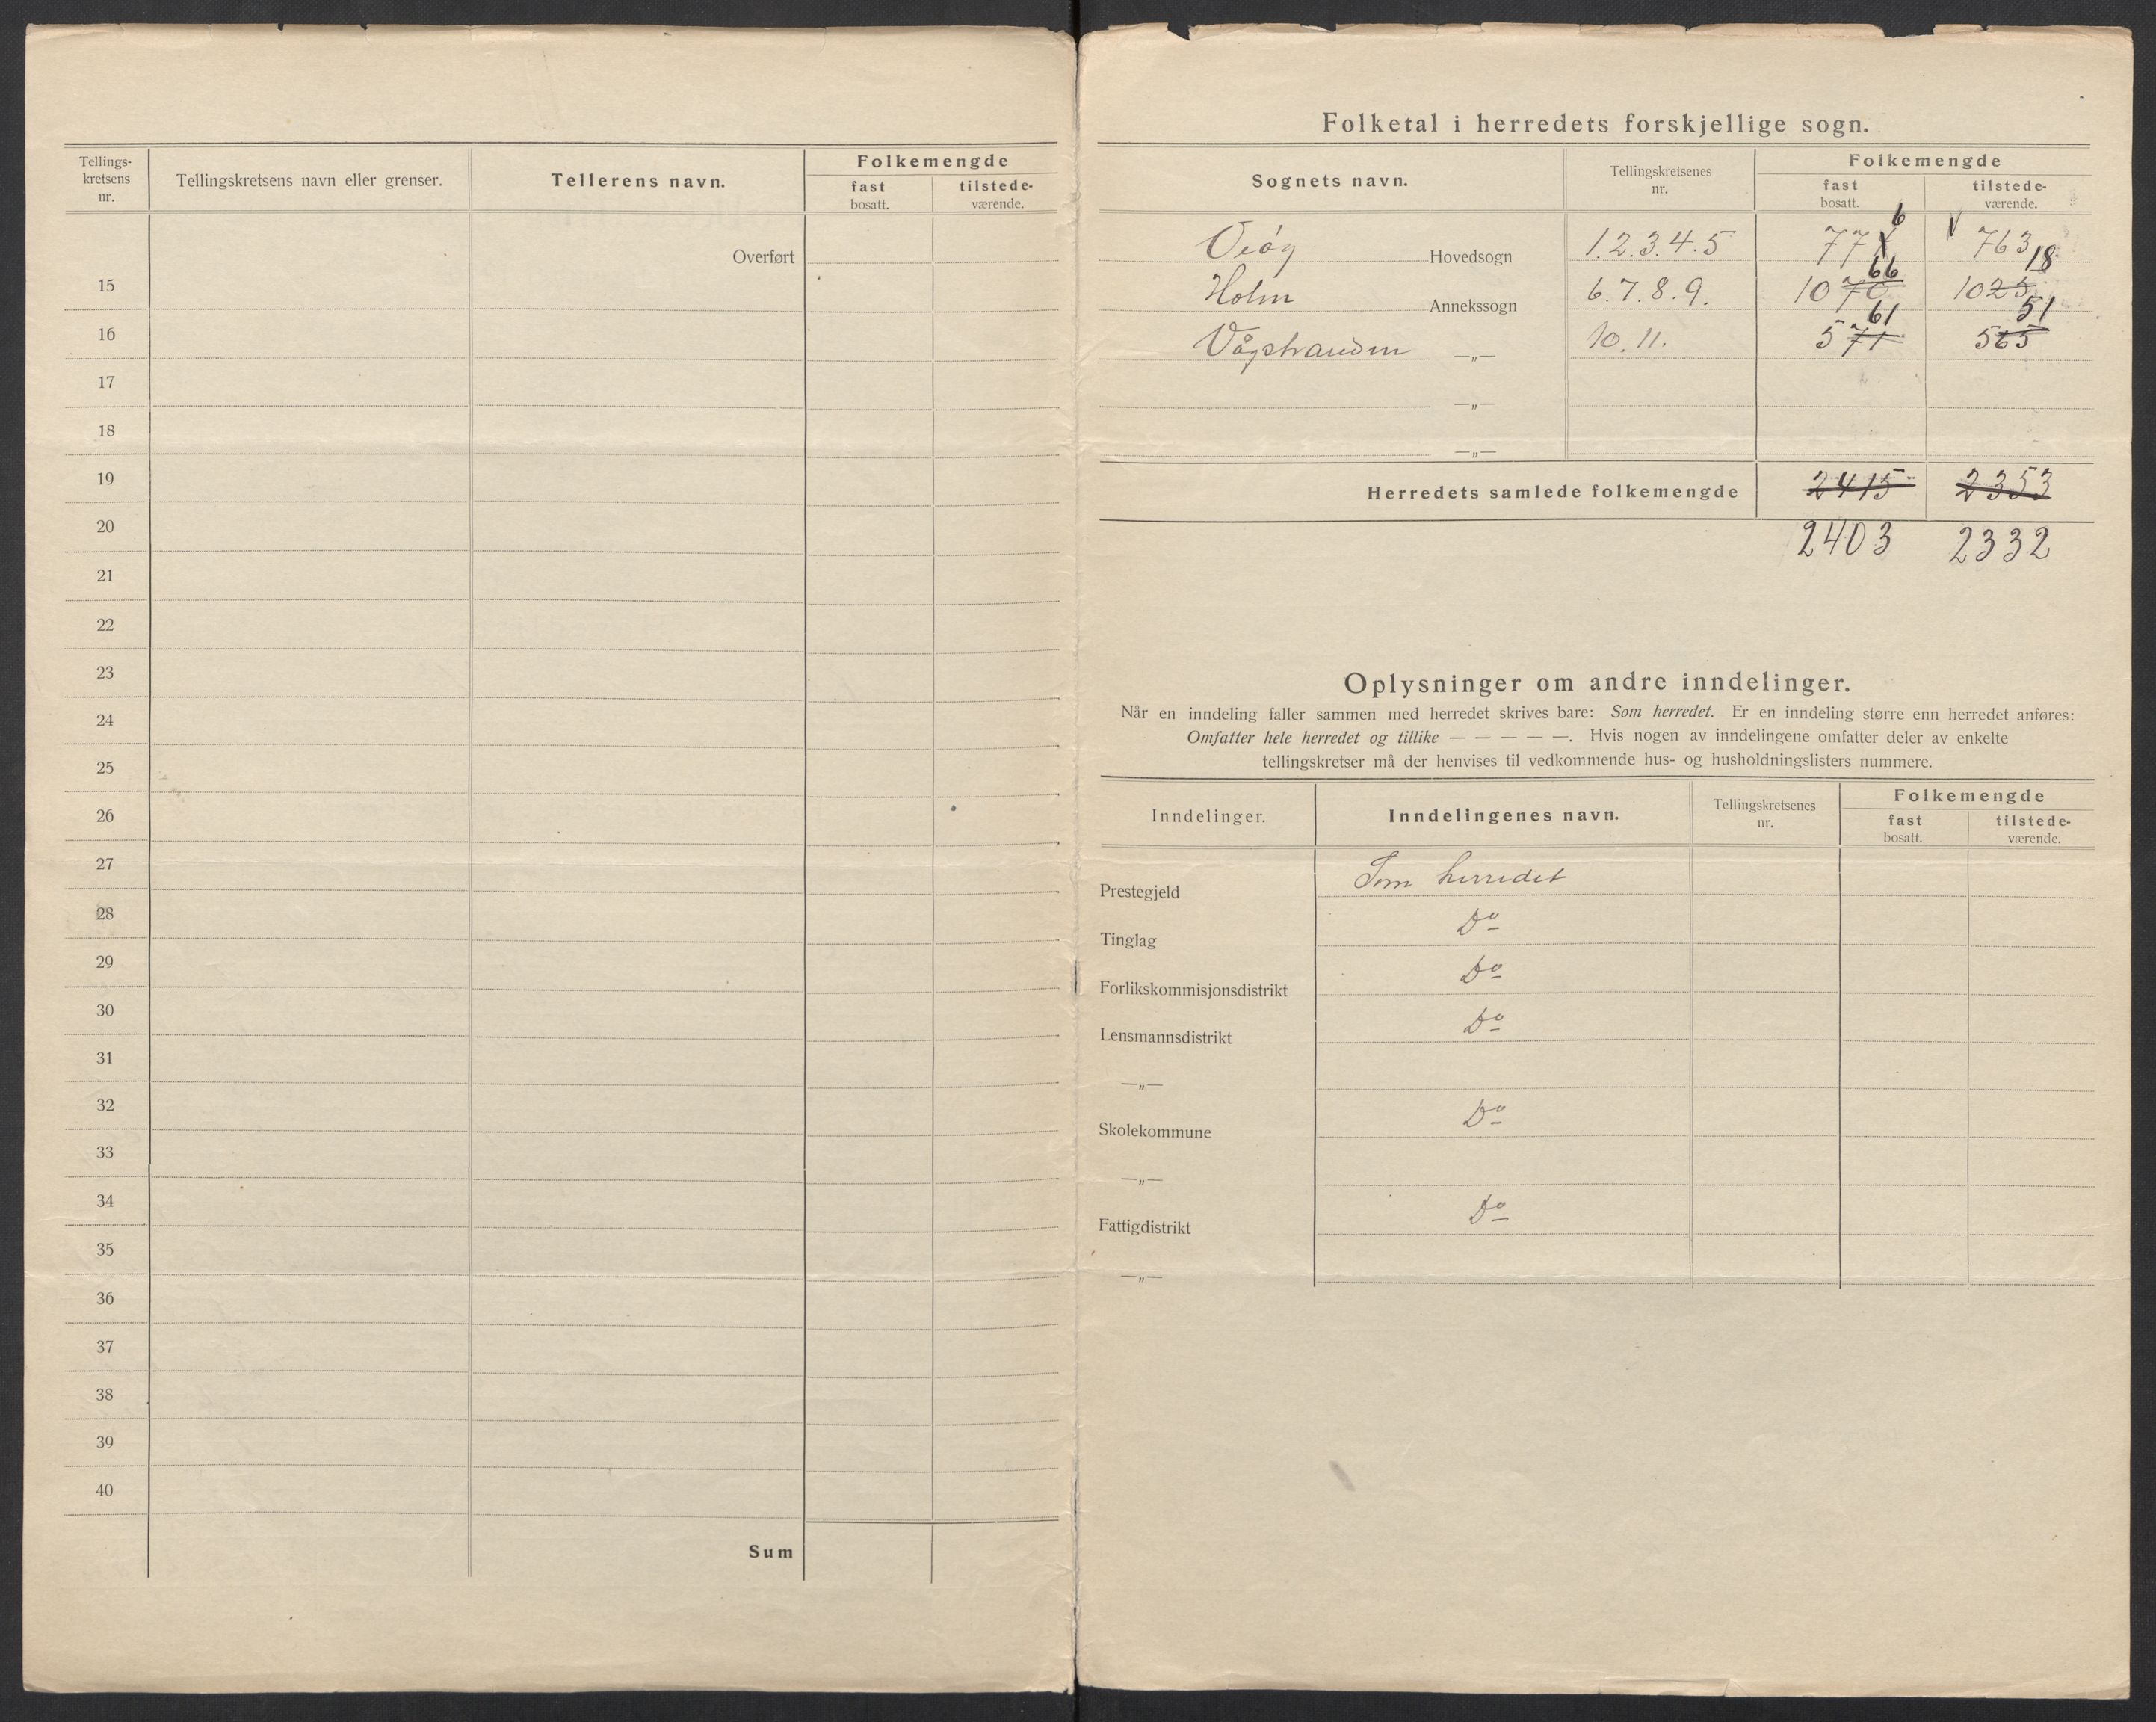 Tellings-
kretsens
nr.
Tellingskretsens navn eller grenser.
Tellerens navn.
Folkemengde
fast
bosatt.
tilstede-
værende.
Overført
15
16
17
18
19
20
21
22
23
24
25
26
27
28
29
30
31
32
33
34
35
36
37
38
39
40
Sum
Folketal i herredets forskjellige sogn.
Sognets navn.
Tellingskretsenes
nr.
Folkemengde
fast
bosatt.
tilstede-
værende.
6
Veøy Hovedsogn 1.2.3.4.5 77 763
66 18
Holm Annekssogn 6.7.8.9. 1070 1025
61 51
Vågstranden —„— 10.11. 571 565
—„—
—„—
Herredets samlede folkemengde 2415 2353
2403 2332
Oplysninger om andre inndelinger.
Når en inndeling faller sammen med herredet skrives bare: Som herredet. Er en inndeling større enn herredet anføres:
Omfatter hele herredet og tillike — — — — —. Hvis nogen av inndelingene omfatter deler av enkelte
tellingskretser må der henvises til vedkommende hus- og husholdningslisters nummere.
Inndelinger.
Inndelingenes navn.
Tellingskretsenes
nr.
Folkemengde
fast
bosatt.
tilstede-
værende.
Prestegjeld Som herredet
Tinglag Do
Forlikskommisjonsdistrikt Do
Lensmannsdistrikt Do
—„—
Skolekommune Do
—„—
Fattigdistrikt Do
—„—